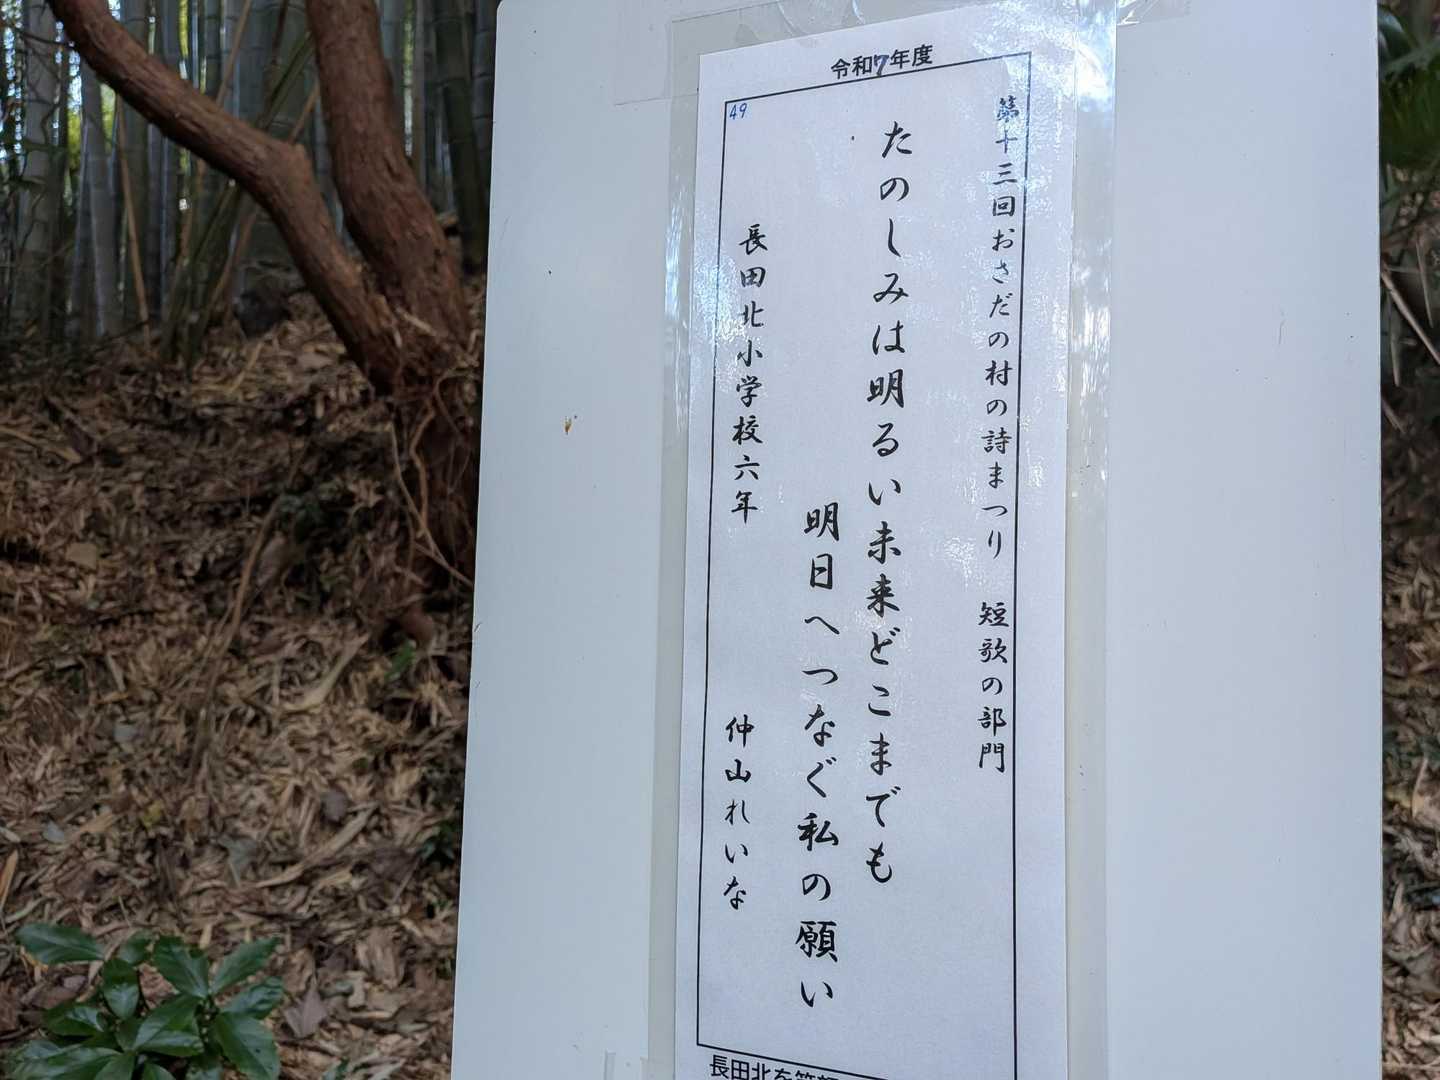 令和7年度
49
第十三回おさだの村の詩まつり 短歌の部門
たのしみは明るい未来どこまでも
明日へつなぐ私の願い
長田北小学校六年 仲山れいな
長田北を